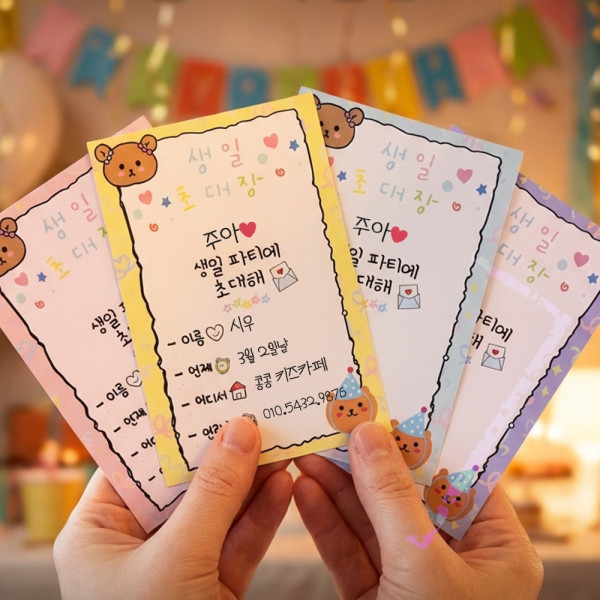 생일
초대장
주아
생일 파티에
초대해
- 이름 시우
- 언제 3월 2일날
- 어디서 콩콩 키즈카페
010.5432.9876
생일
초대장
- 이름
- 언제
생일
초대장
주아
파티에
초대해
생일
초대장
파티에